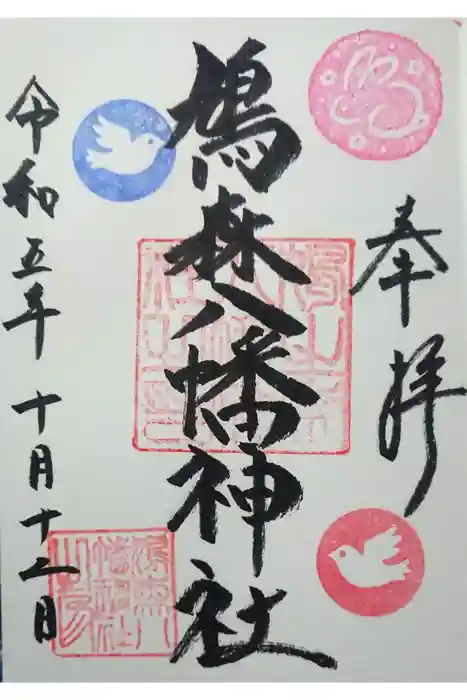 奉拝
鳩森八幡神社
令和五年十月十二日